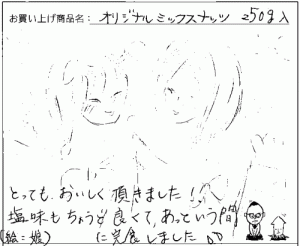 お買い上げ商品名：オリジナルミックスナッツ 250g入
とっても、おいしく頂きました！
塩味もちょうど良くて、あっという間
(絵：娘) に完食しました